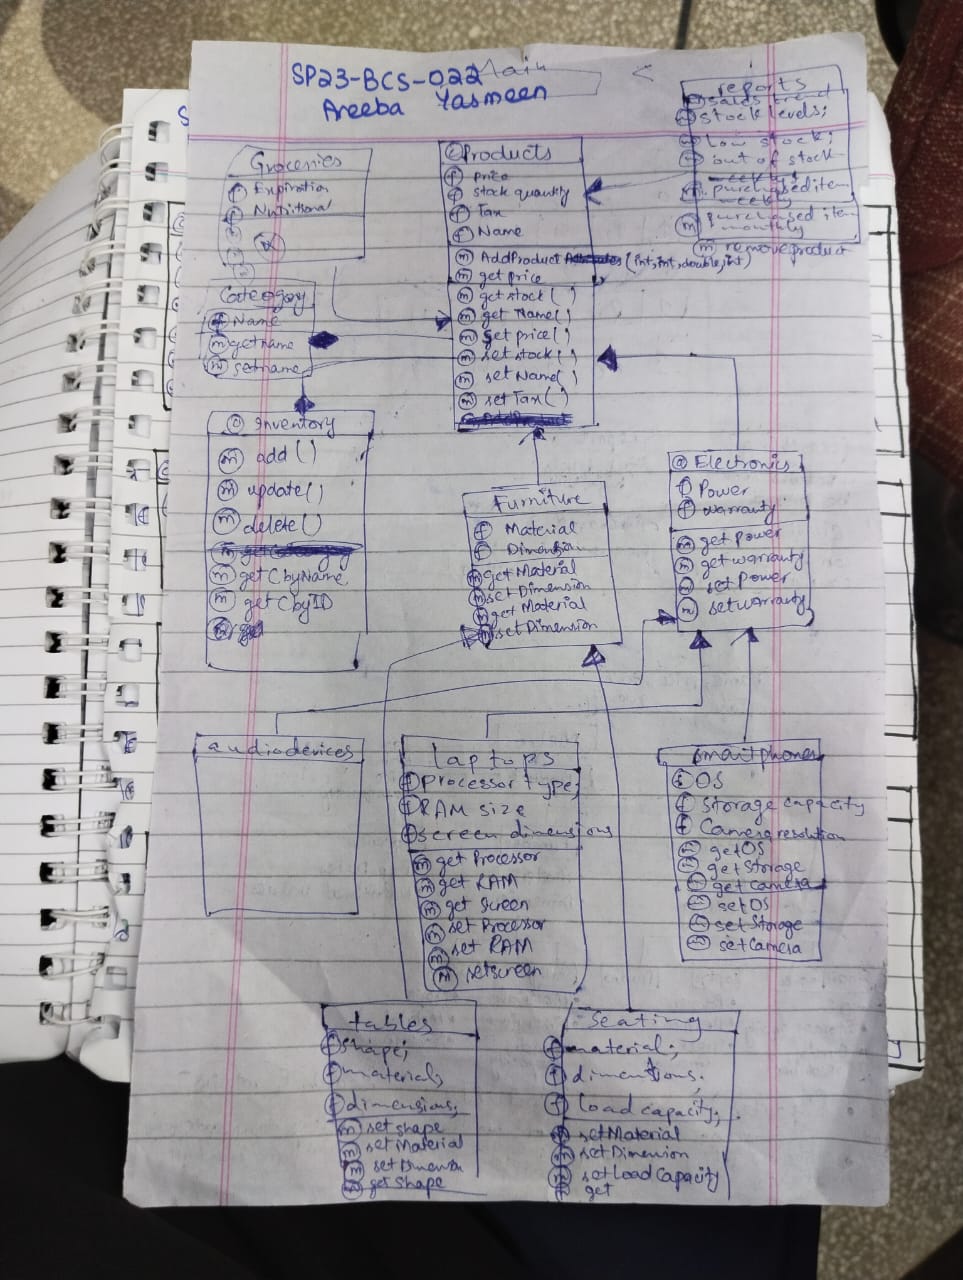 SP23-BCS-022
Main
Areeba Yasmeen
reports
stock levels;
low stock;
out of stock
weekly;
purchased item
weekly
m purchased item
monthly
m remove product
Groceries
f Expiration
f Nutritional
c Products
f price
f stock quantity
f Tax
f Name
m AddProduct (int, int, double, int)
m get price
m get stock ( )
m get Name( )
m set price( )
m set stock( )
m set Name( )
m set Tax( )
Category
f Name
m getname
m setname
c Inventory
m add ( )
m update( )
m delete( )
m get CbyName
m get CbyID
Furniture
f Material
f Dimension
m get Material
m set Dimension
m get Material
m set Dimension
c Electronics
f Power
f warranty
m get power
m get warranty
m set Power
m set warranty
audiodevices
laptops
f processor type;
f RAM size
f screen dimensions
m get Processor
m get RAM
m get screen
m set Processor
m set RAM
m setscreen
smartphones
f OS
f storage capacity
f Camera resolution
m get OS
m get storage
m get camera
m set OS
m set Storage
m set Camera
tables
f shape;
f material;
f dimensions;
m set shape
m set Material
m set Dimension
m get Shape
Seating
f material;
f dimensions.
f load capacity;
m set Material
m set Dimension
m set Load Capacity
get